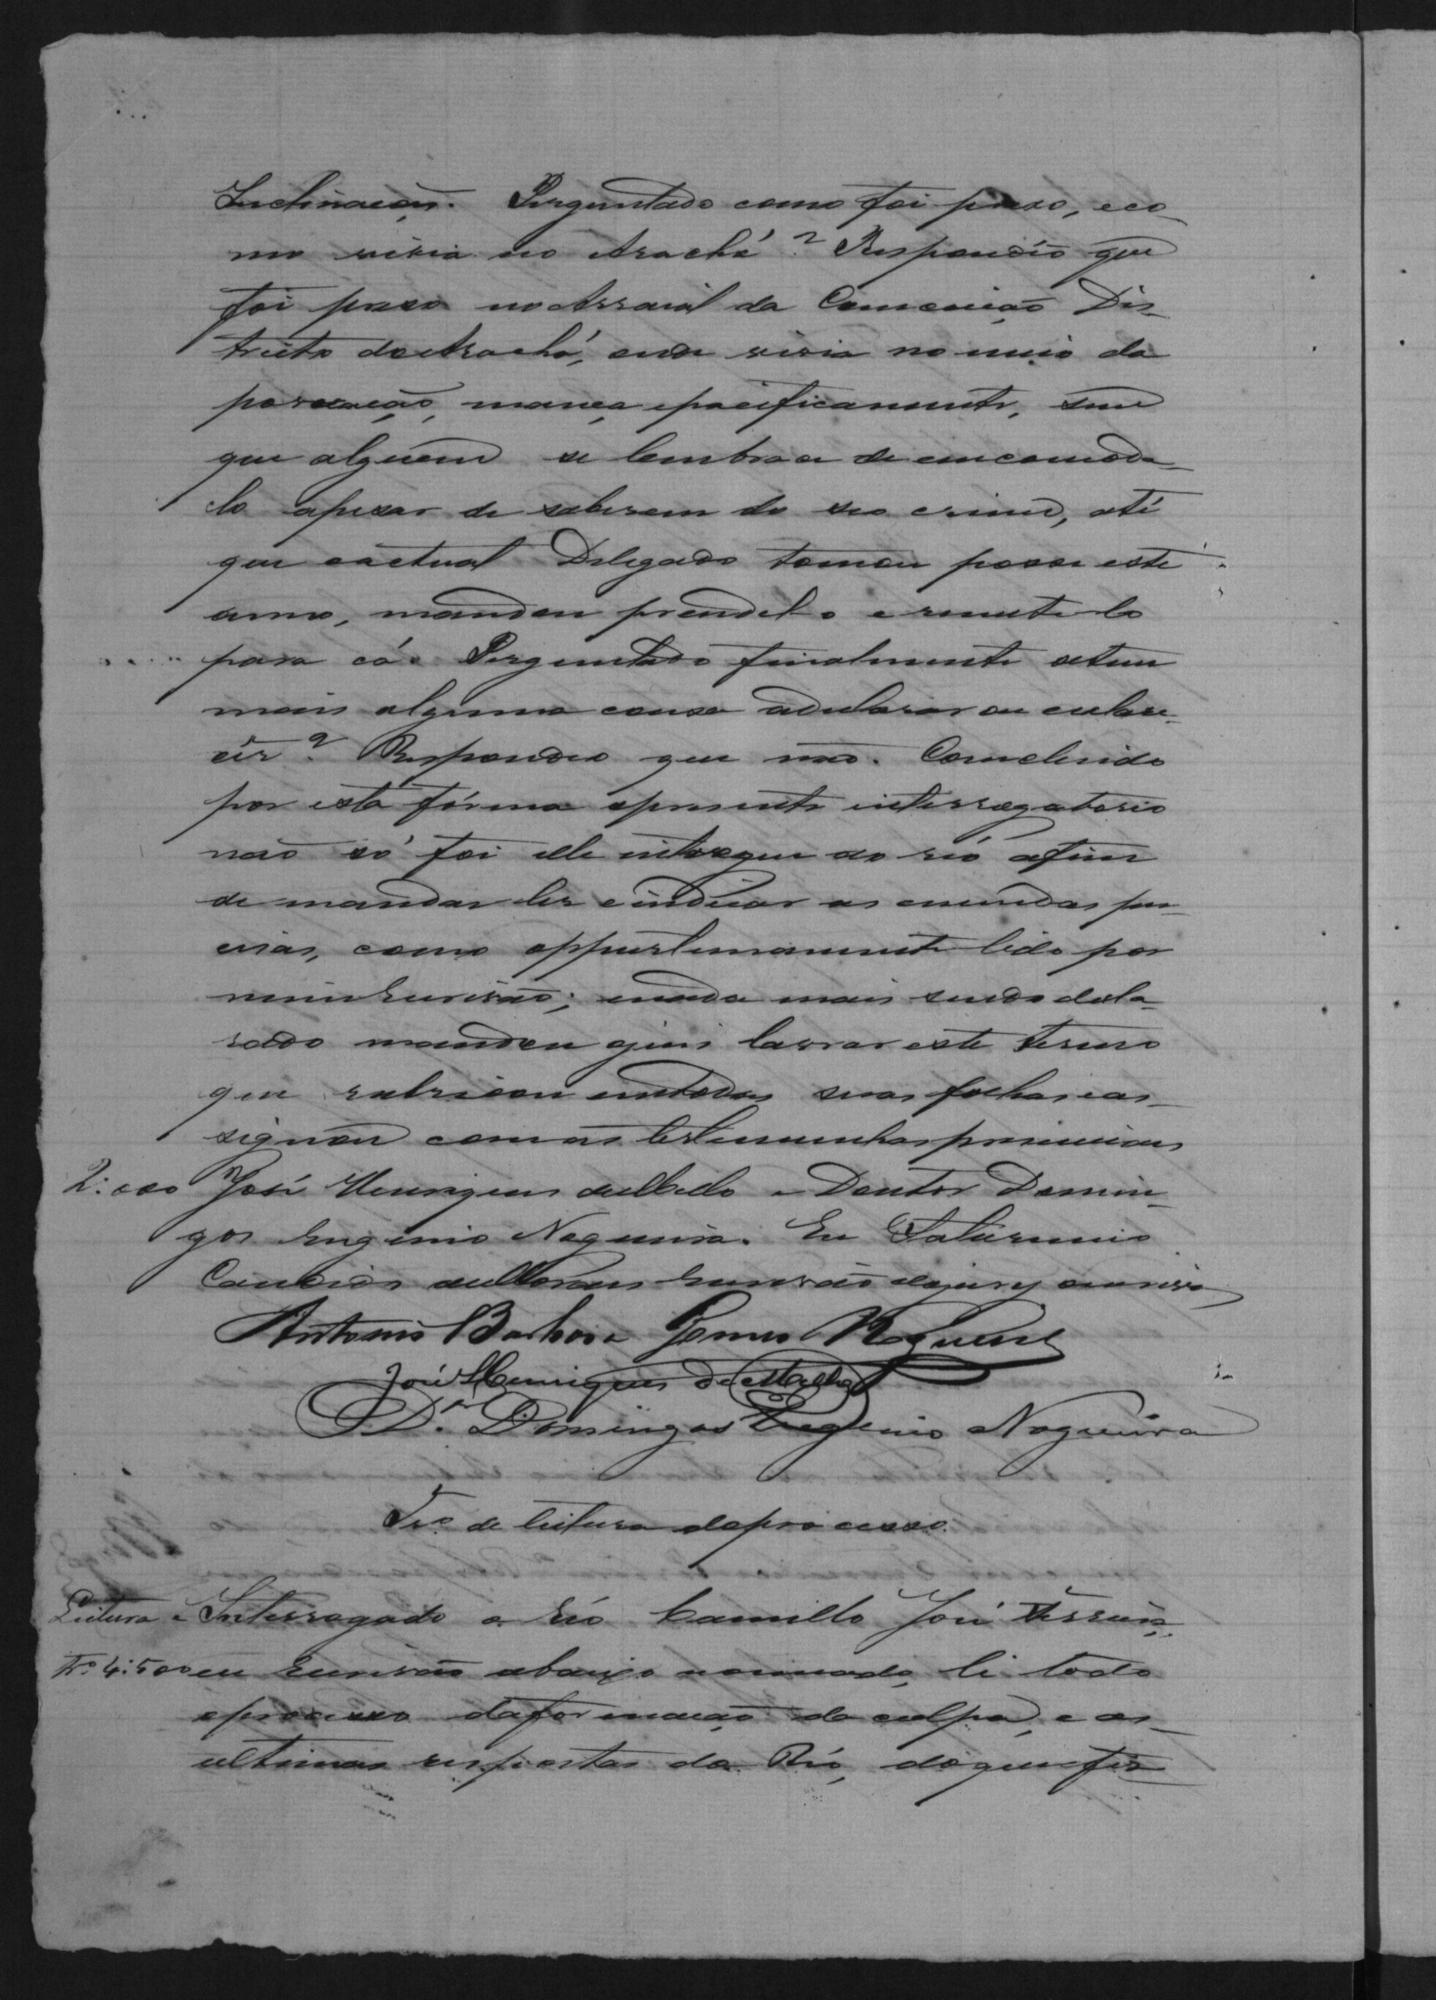 Inclinação. Perguntado como foi prezo, e co-
mo vivia no Arachá? Respondeo que
foi prezo no Arraial da Conceição Dis-
tricto do Arachá, onde vivia no meio da
povoação, mança e pacificamente, sem
que alguem se lembrace de encommoda-
lo apezar de saberem do seo crime, até
que o actual Delegado tomou posse este
anno, mandou prendel-o e remetelo
para cá. Perguntado finalmente se tem
mais alguma cousa a declarar ou esclare-
cer? Respondeo que não. Concluido
por esta fórma o presente interrogatorio
não só foi elle entregue ao réo afim
de mandar ler e indicar as emendas pre-
cisas, como opportunamente lido por
mim Escrivão; e nada mais sendo decla-
rado mandou o juis lavrar este termo
que rubricou em todas suas folhas e as-
signou com as testemunhas presenciaes
2:000 José Henriques de Mello e Doutor Domin-
gos Eugenio Nogueira. Eu Saturnino
Candido de Moraes Escrivão do jury o escrevi
Antonio Barbosa Gomes Nogueira
José Henriques de Mello
Dr. Domingos Eugenio Nogueira
Tro. de leitura do processo.
Leitura e Interrogado o réo Camillo José
Tº. 4:500 eu Escrivão abaixo nomeado, li todo
o processo da formação da culpa, e as
ultimas respostas do Réo, do que fiz